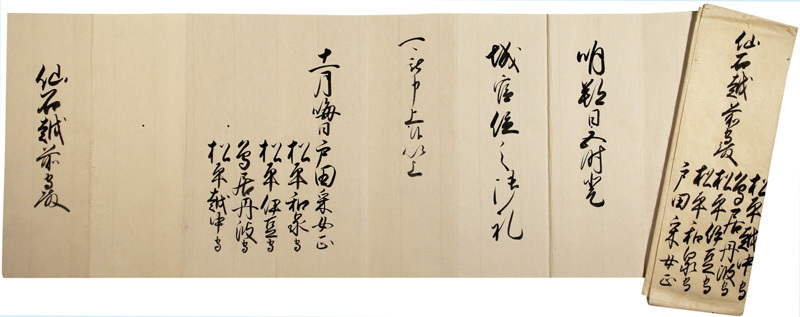 仙石越前守殿
松平越中守
鳥居丹波守
松平伊豆守
松平和泉守
戸田采女正
明朔日五時登
城官位之御礼
可被申上候以上
十一月晦日 戸田采女正
松平和泉守
松平伊豆守
鳥居丹波守
松平越中守
仙石越前守殿